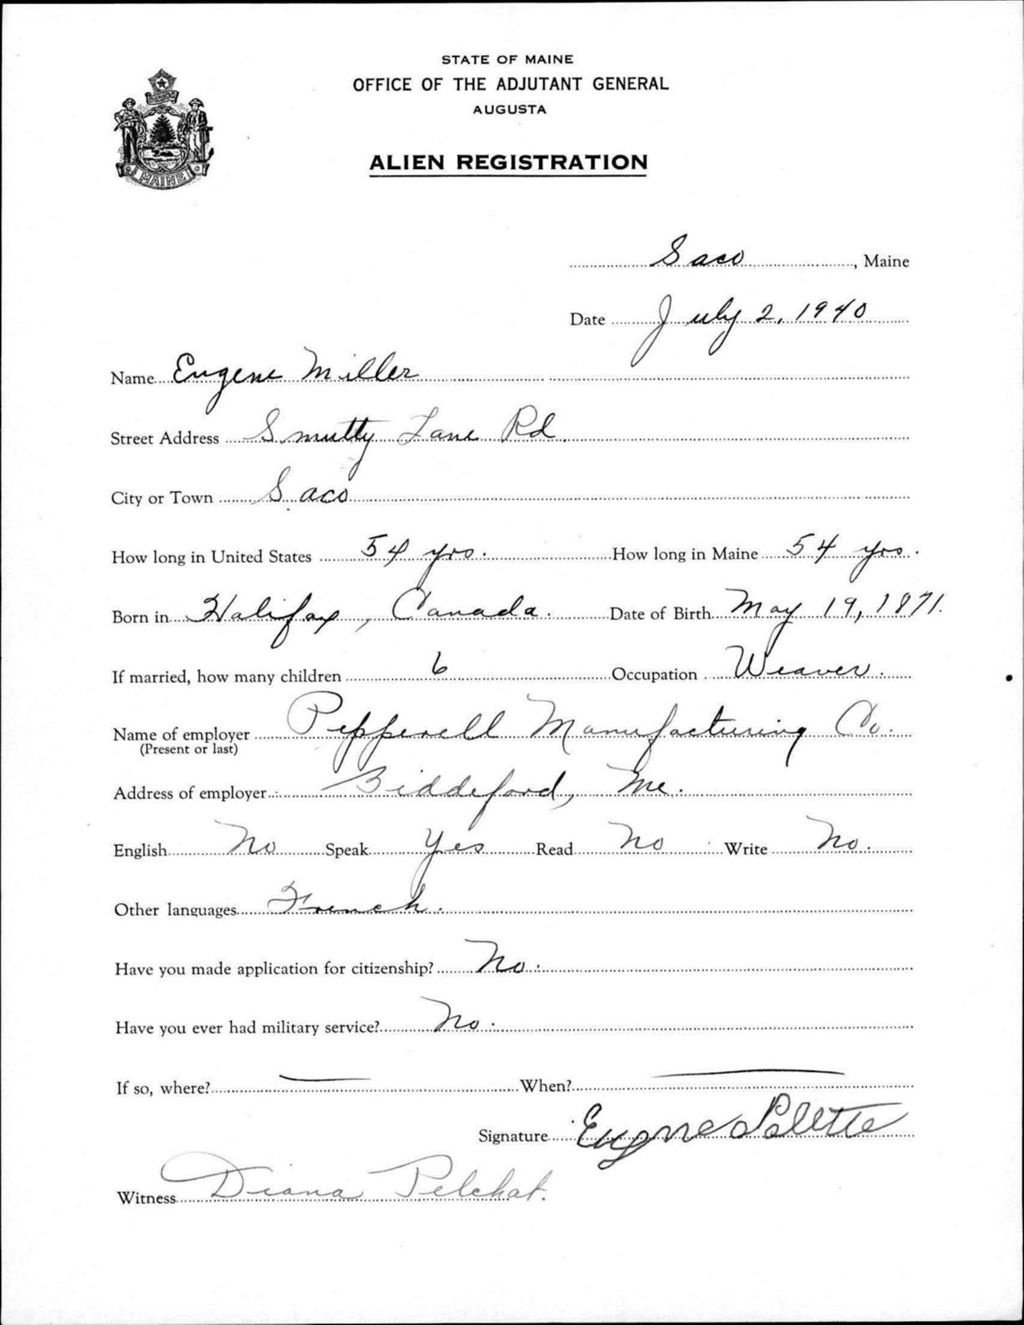 STATE OF MAINE
OFFICE OF THE ADJUTANT GENERAL
AUGUSTA
ALIEN REGISTRATION
MAINE
Saco, Maine
Date July 2, 1940
Name Eugene Miller
Street Address Smutty Lane Rd.
City or Town Saco
How long in United States 54 yrs. How long in Maine 54 yrs.
Born in Halifax, Canada. Date of Birth May 19, 1871.
If married, how many children 6 Occupation Weaver.
Name of employer Pepperell Manufacturing Co.
(Present or last)
Address of employer Biddeford, Me.
English No Speak Yes Read No Write No.
Other languages French.
Have you made application for citizenship? No.
Have you ever had military service? No.
If so, where? — When? —
Signature Eugene
Witness Diana Pelchat.